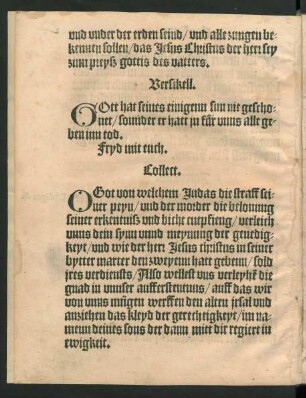 vnd vnder der erden seind/ vnd alle zungen be-
kennen sollen/ das Jesus Christus der herr sey
zum preyß gottis des vatters.
Versikell.
GOtt hat seines einigenn sun nie gescho-
net/ sonnder er hatt jn für vnns alle ge-
ben inn tod.
Fryd mit euch.
Collect.
O Got von welchem Judas die straff sei-
ner peyn/ vnd der morder die belonung
seiner erkentniß vnd bicht enpfieng/ verleich
vnns dein synn vnnd meynung der genedig-
keyt/ vnd wie der herr Jesus christus in seiner
bytter marter den zweyenn hatt gebenn/ sold
jres verdiensts/ Also wellest vns verleyhē die
gnad in vnnser aufferstentnus/ auff das wir
von vnns mügen werffen den alten jesal vnd
anziehen das kleyd der gerechtigkeyt/ im na-
menn deines sons der dann miet dir regiert in
ewigkeit.